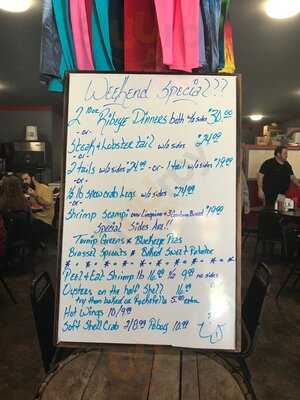 Weekend Special???
2 10oz Ribeye Dinners both w/sides $30.00
-or-
Steak & Lobster tail w/2 sides $24.99
-or-
2 tails w/2 sides $24.99 -or- 1 tail w/sides $19.99
-or-
lb Snow Crab Legs w/2 sides $24.99
-or-
Shrimp Scampi over Linguine & Bread $19.99
Special Sides Are!!
Turnip Greens * Blackeye Peas
Brussel Sprouts * Baked Sweet Potatoe
Peel & Eat Shrimp lb 16.99 ½ 9.99 no sides
Oysters on the half Shell 16.99
try them baked or Rockefella 5.00 extra
Hot Wings 10/9.99
Soft Shell Crab 2/18.99 Poboy 10.99